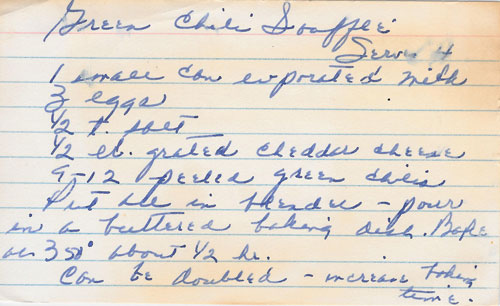 Green Chili Souffle
Serves 4
1 small can evporated milk
3 eggs
1/2 t. salt
1/2 lb. grated cheddar cheese
9-12 peeled green chilis
Put all in blender - pour
in a buttered baking dish. Bake
at 350° about 1/2 hr.
Can be doubled - increase baking
time.